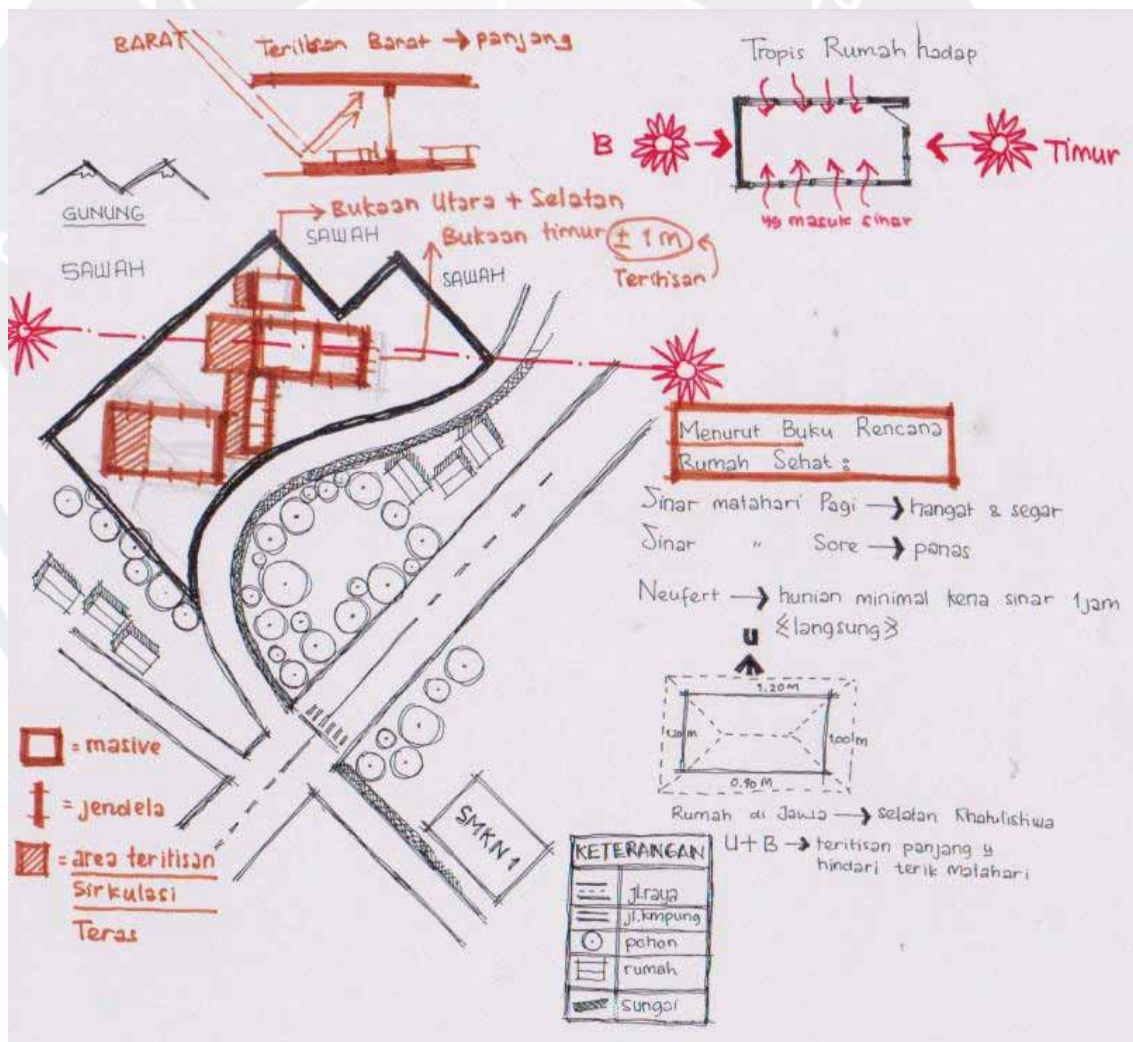 BARAT
Teritisan Barat → panjang
Tropis Rumah hadap
B
Timur
yg masuk sinar
GUNUNG
SAWAH
Bukaan Utara + Selatan
SAWAH
Bukaan timur ± 1 m
SAWAH
Teritisan
Menurut Buku Rencana
Rumah Sehat :
Sinar matahari Pagi → hangat & segar
Sinar " Sore → panas
Neufert → hunian minimal kena sinar 1 jam
<<langsung>>
U
1.20 M
1.20 M
1.00 M
0.90 M
Rumah di Jawa → selatan Khatulistiwa
U + B → teritisan panjang y
hindari terik matahari
= masive
= jendela
= area teritisan
Sirkulasi
Teras
SMKN 1
KETERANGAN
jl.raya
jl.kmpung
pohon
rumah
sungai